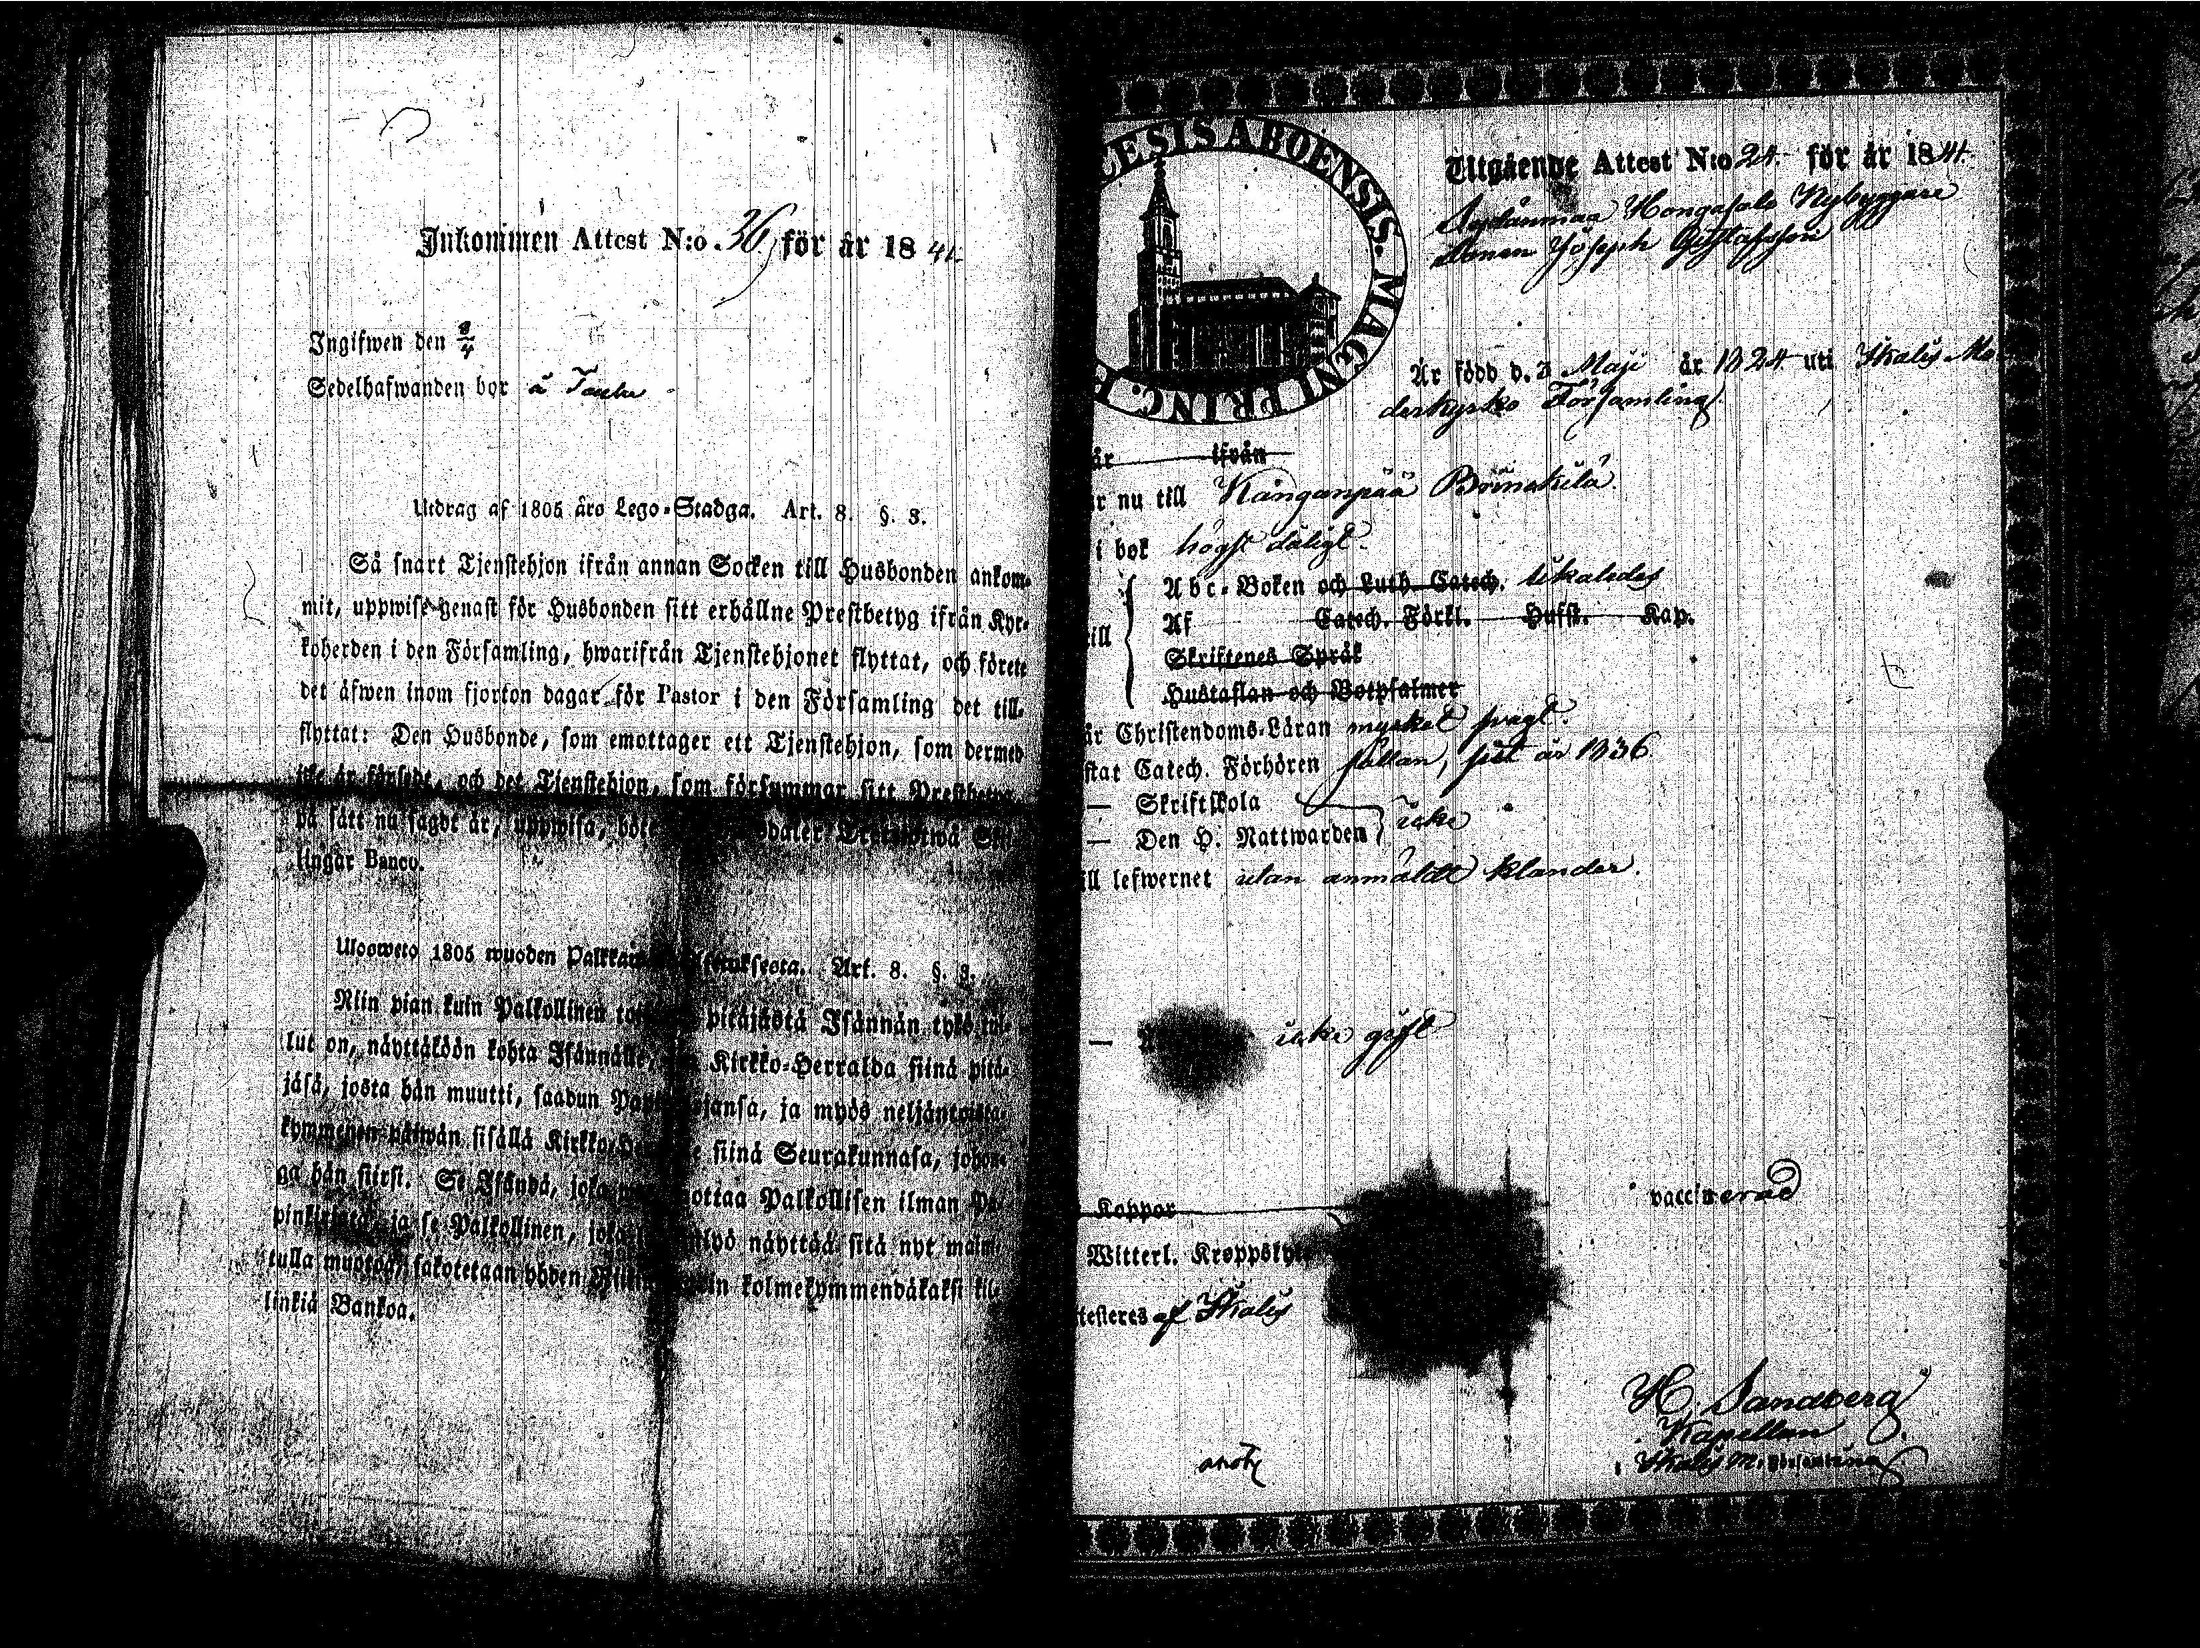 Inkommen Attest N:o. 36 för år 1841.
Ingifwen den 8/4
Sedelhafwanden bor å
Utdrag af 1805 års Lego-Stadga. Art. 8. §. 3.
Så snart Tjenstehjon ifrån annan Socken till Husbonden ankom-
mit, uppwise genast för Husbonden sitt erhållne Prestbetyg ifrån Kyr-
koherden i den Församling, hwarifrån Tjenstehjonet flyttat, och förete
det äfwen inom fjorton dagar för Pastor i den Församling det till-
flyttat: Den Husbonde, som emottager ett Tjenstehjon, som dermed
icke är försedt, och det Tjenstehjon, som försummar sitt Prestbetyg
på sätt nu sagdt är, uppwisa, böte
lingar Banco.
Ulosweto 1805 wuoden Art. 8. §. 3.
Niin pian kuin Palkollinen pitäjästä Isännän tykö tul-
lut on, näyttäköön kohta Isännälle, Kirkko-Herralda siinä pitä-
jäsä, josta hän muutti, saadun ja myös neljäntoista-
kymmenen päiwän sisällä siinä Seurakunnasa, johon-
ga hän siirsi. Se Isändä, joka ottaa Palkollisen ilman Pa-
pinkirjata, ja se Palkollinen, joka näyttää sitä nyt maini-
tulla muotoa, sakotetaan yhden kolmekymmendäkaksi kil-
linkiä Bankoa.
CESIS ABOENSIS. MAGNI PRINC. F
Utgående Attest N:o 24 för år 1841.
Sydänmaa Hongasalo Nybyggare
Sonen Joseph Gustafsson
Är född d. 3 Maji år 1824 uti Ikalis Mo
derkyrko Församling.
år ifrån
r nu till Kangaapää
i bok högst dåligt.
ill
Abc-Boken och Luth. Catech. likaledes
Af Catech. Förkl. Husst. Kap.
Skriftenes Språk
Hustaflan och Botpsalmer
år Christendoms-Läran mycket svagt.
stat Catech. Förhören sällan, sist år 1836
— Skriftskola
— Den H. Nattwarden icke
ill lefwernet utan anmäldt klander.
— icke gift
Koppor vaccinerad
Witterl. Kroppslyte
testeres af Ikalis
H. Sandberg
Kapellan
Ikalis M. församling